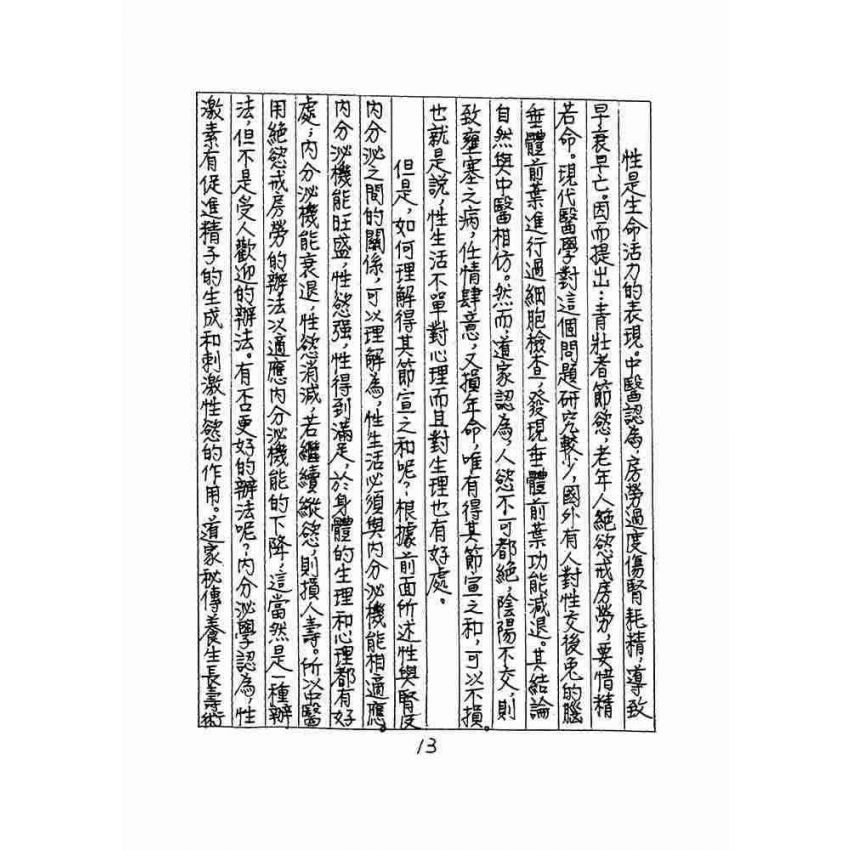 性是生命活力的表現。中醫認為,房勞過度傷腎耗精,導致
早衰早亡。因而提出:青壯者節慾,老年人絕慾戒房勞,要惜精
若命。現代醫學對這個問題研究較少,國外有人對性交後兔的腦
垂體前葉進行過細胞檢查,發現垂體前葉功能減退。其結論
自然與中醫相仿。然而,道家認為,人慾不可都絕,陰陽不交,則
致壅塞之病,任情肆意,又損年命,唯有得其節宣之和,可以不損。
也就是說,性生活不單對心理而且對生理也有好處。
但是,如何理解得其節宣之和呢?根據前面所述性與腎及
內分泌之間的關係,可以理解為,性生活必須與內分泌機能相適應。
內分泌機能旺盛,性慾强,性得到滿足,於身體的生理和心理都有好
處;內分泌機能衰退,性慾消減,若繼續縱慾,則損人壽。所以中醫
用絕慾戒房勞的辦法以適應內分泌機能的下降,這當然是一種辦
法,但不是受人歡迎的辦法。有否更好的辦法呢?內分泌學認為,性
激素有促進精子的生成和刺激性慾的作用。道家秘傳養生長壽術
13